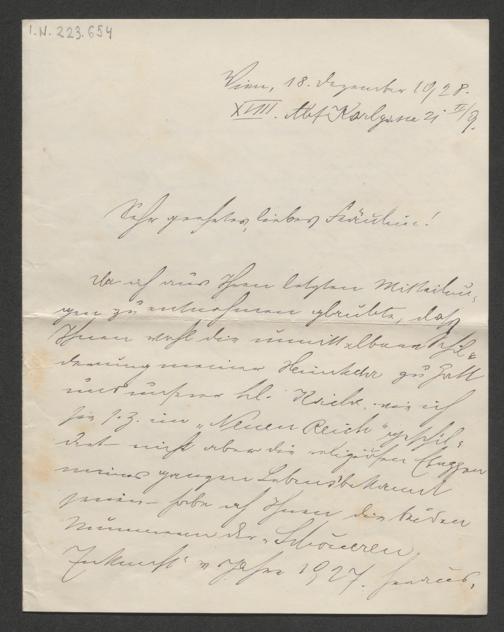 I.N. 223.654
Wien, 18. Dezember 1928.
XVIII. Abt Karlgasse 21 II/9.
Sehr geehrtes, liebes Fräulein!
Da ich aus Ihren letzten Mitteilun-
gen zu entnehmen glaubte, daß
Ihnen wohl die unmittelbare Schil-
derung meiner Heimkehr zu Gott
und unserer hl. Kirche wie ich
sie s. Z. im „Neuen Reich" geschil-
dert nicht aber die religiösen Etappen
meines ganzen Lebens bekannt
seien – habe ich Ihnen die beiden
Nummern der „Schöneren
Zukunft" v. Jahre 1927. heraus-